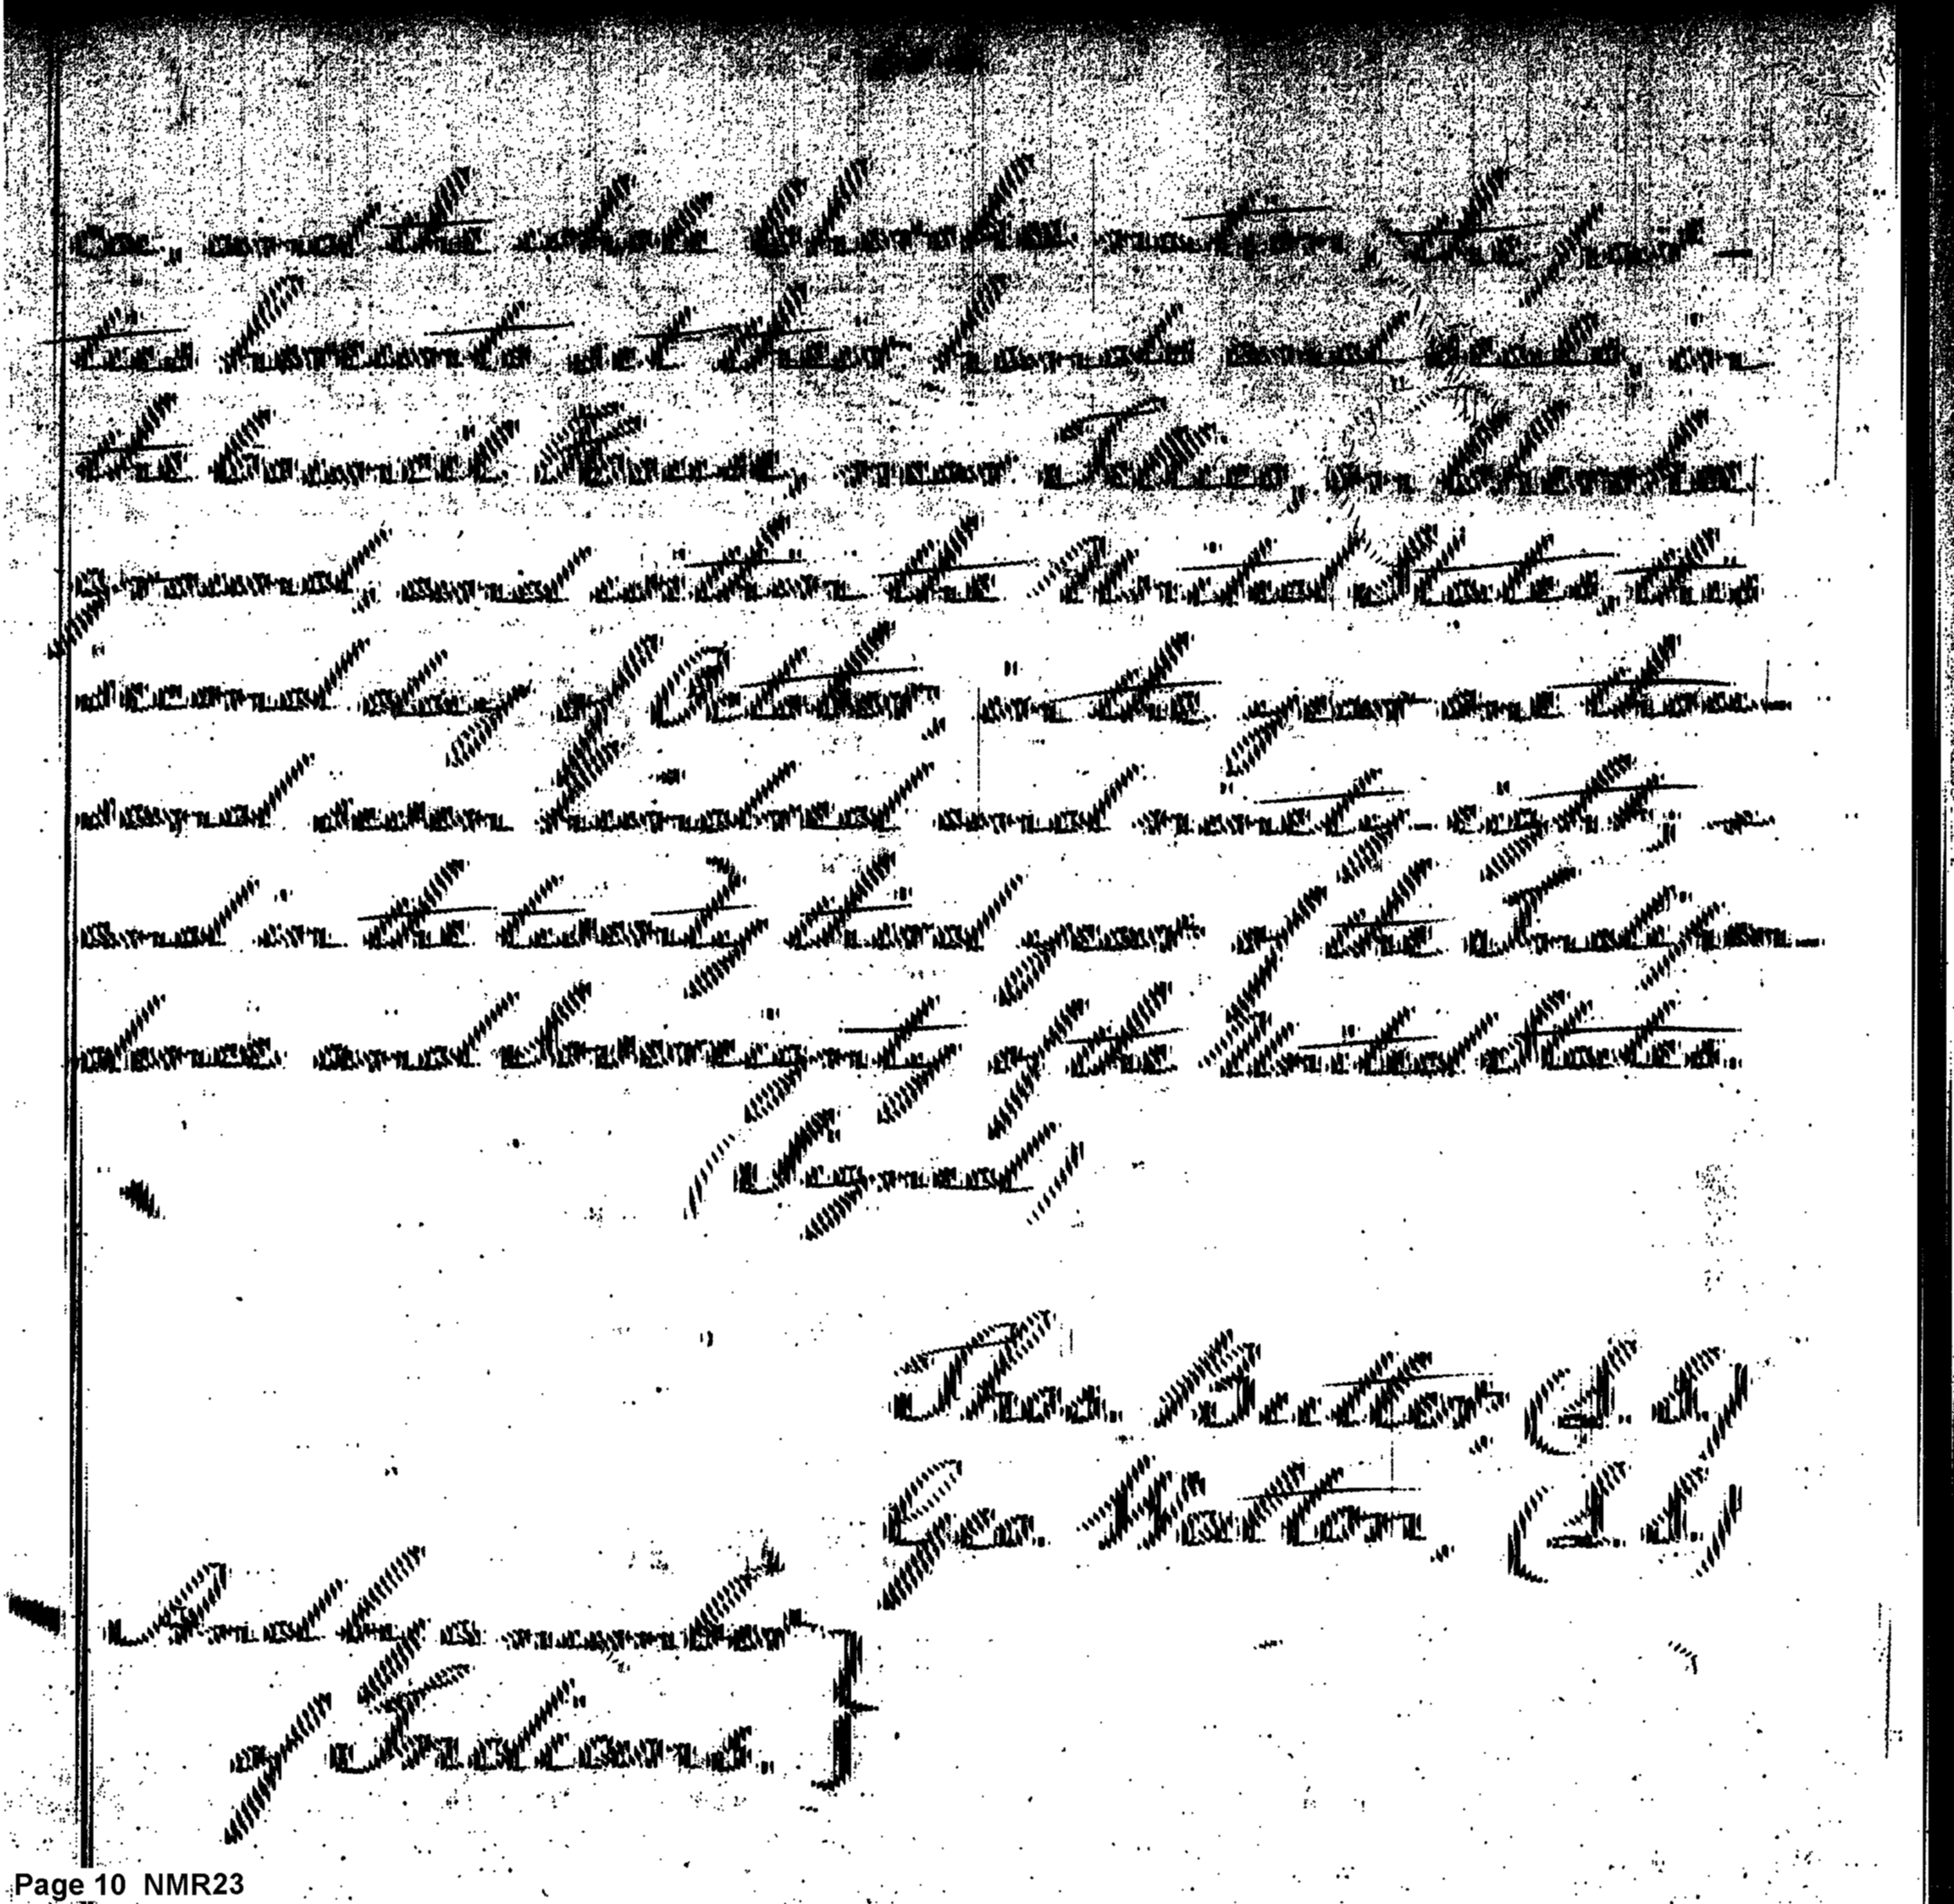 ca, and the whole Cherokee nation, the par-
ties hereunto set their hands and seals, in
the Council House, near Tellico, on Cherokee
ground, and within the United States, this
second day of October, in the year one thou-
sand seven hundred and ninety-eight,
and in the twenty third year of the Indepen-
dence and Sovereignty of the United States.
(Signed)
Thos. Butler, (L. S.)
Geo. Walton, (L. S.)
And by a number
of Indians.
Page 10 NMR23